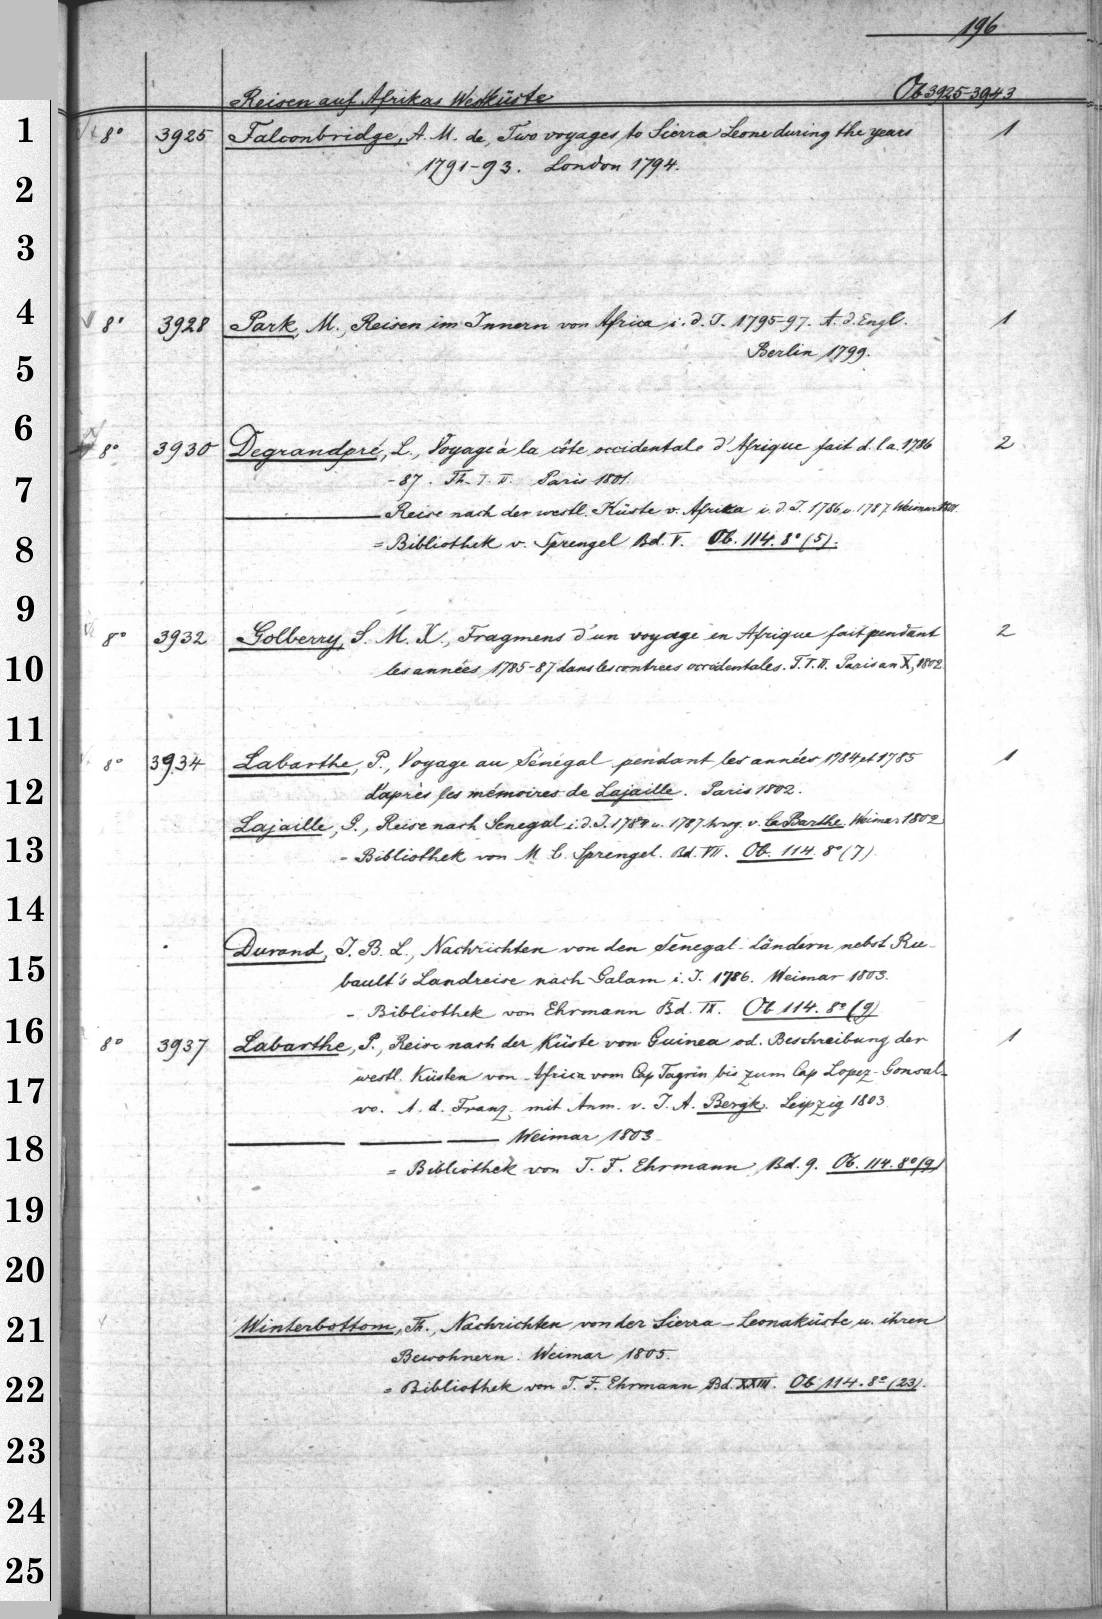 196
Reisen auf Afrikas Westküste Ob 3925-3943
1 8° 3925 Falconbridge, A. M. de, Two voyages to Sierra Leone during the years 1
1791-93. London 1794.
2
3
4 8° 3928 Park, M., Reisen im Innern von Africa i. d. J. 1795-97. A. d. Engl. 1
Berlin 1799.
5
6 8° 3930 Degrandpré, L., Voyage à la côte occidentale d'Afrique fait d. l. a. 1786 2
-87. Th. I. II. Paris 1801.
7
Reise nach der westl. Küste v. Afrika i. d. J. 1786 u. 1787. Weimar 1801.
8 = Bibliothek v. Sprengel Bd. V. Ob. 114. 8° (5).
9
8° 3932 Golberry, S. M. X., Fragmens d'un voyage en Afrique fait pendant 2
10 les années 1785-87 dans les contrees occidentales. T. I. II. Paris an X, 1802
11
8° 3934 Labarthe, P., Voyage au Sénégal pendant les années 1784 et 1785 1
12 d'après les mémoires de Lajaille. Paris 1802.
Lajaille, G., Reise nach Senegal i. d. J. 1784 u. 1787. hrsg. v. la Barthe Weimar 1802
13 - Bibliothek von M. C. Sprengel. Bd. VII. Ob. 114. 8° (7)
14
Durand, J. B. L., Nachrichten von den Senegal-ländern nebst Ru-
15 bault's Landreise nach Galam i. J. 1786. Weimar 1803.
- Bibliothek von Ehrmann Bd. IX. Ob 114. 8° (9)
16 8° 3937 Labarthe, P., Reise nach der Küste von Guinea od. Beschreibung der 1
westl. Küsten von Africa vom Cap Tagrin bis zum Cap Lopez-Gonsal-
17 vo. A. d. Franz. mit Anm. v. J. A. Bergk. Leipzig 1803.
18 Weimar 1803.
= Bibliothek von T. F. Ehrmann, Bd. 9. Ob. 114. 8° (9)
19
20
21 Winterbottom, Th., Nachrichten von der Sierra-Leonaküste u. ihren
Bewohnern. Weimar 1805.
22 = Bibliothek von T. F. Ehrmann Bd. XXIII. Ob 114. 8° (23).
23
24
25